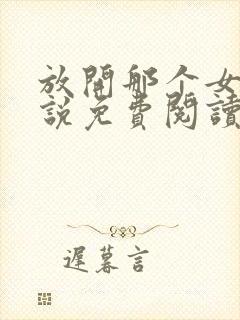 放開那个女
説免費閱讀
遲暮言